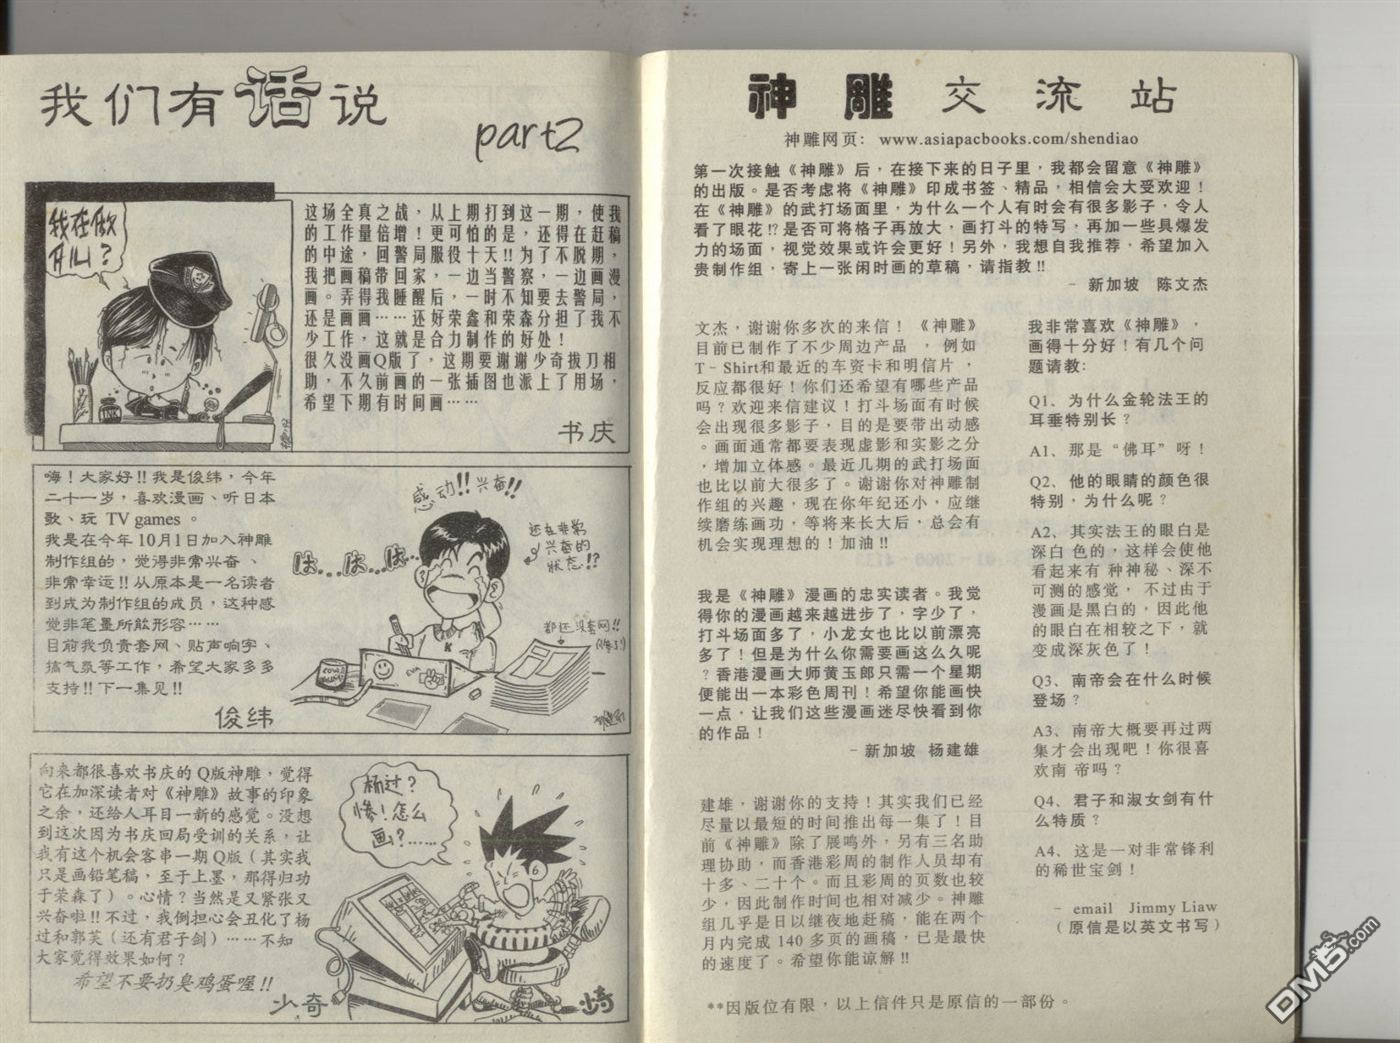 我们有话说
part2
我在做
开心？
这场全真之战，从上期打到这一期，使我
的工作量倍增！更可怕的是，还得在赶稿
的中途，回警局服役十天!!为了不脱期，
我把画稿带回家，一边当警察，一边画漫
画。弄得我睡醒后，一时不知要去警局，
还是画画……还好荣鑫和荣森分担了我不
少工作，这就是合力制作的好处！
很久没画Q版了，这期要谢谢少奇拔刀相
助，不久前画的一张插图也派上了用场，
希望下期有时间画……
书庆
嗨！大家好!!我是俊纬，今年
二十一岁，喜欢漫画、听日本
歌、玩 TV games 。
我是在今年10月1日加入神雕
制作组的，觉得非常兴奋、
非常幸运!!从原本是一名读者
到成为制作组的成员，这种感
觉非笔墨所能形容……
目前我负责套网、贴声响字、
搞气氛等工作，希望大家多多
支持!!下一集见!!
俊纬
感动!! 兴奋!!
还在非常
兴奋的
状态!?
都还没套网!!
向来都很喜欢书庆的Q版神雕，觉得
它在加深读者对《神雕》故事的印象
之余，还给人耳目一新的感觉。没想
到这次因为书庆回局受训的关系，让
我有这个机会客串一期Q版（其实我
只是画铅笔稿，至于上墨，那得归功
于荣森了）。心情？当然是又紧张又
兴奋啦!!不过，我倒担心会丑化了杨
过和郭芙（还有君子剑）……不知
大家觉得效果如何？
希望不要扔臭鸡蛋喔!!
少奇
杨过？
惨！怎么
画？……
神雕交流站
神雕网页：www.asiapacbooks.com/shendiao
第一次接触《神雕》后，在接下来的日子里，我都会留意《神雕》
的出版。是否考虑将《神雕》印成书签、精品，相信会大受欢迎！
在《神雕》的武打场面里，为什么一个人有时会有很多影子，令人
看了眼花!?是否可将格子再放大，画打斗的特写，再加一些具爆发
力的场面，视觉效果或许会更好！另外，我想自我推荐，希望加入
贵制作组，寄上一张闲时画的草稿，请指教!!
- 新加坡 陈文杰
文杰，谢谢你多次的来信！《神雕》
目前已制作了不少周边产品 ，例如
T-Shirt和最近的车资卡和明信片，
反应都很好！你们还希望有哪些产品
吗？欢迎来信建议！打斗场面有时候
会出现很多影子，目的是要带出动感
。画面通常都要表现虚影和实影之分
，增加立体感。最近几期的武打场面
也比以前大很多了。谢谢你对神雕制
作组的兴趣，现在你年纪还小，应继
续磨练画功，等将来长大后，总会有
机会实现理想的！加油!!
我是《神雕》漫画的忠实读者。我觉
得你的漫画越来越进步了，字少了，
打斗场面多了，小龙女也比以前漂亮
多了！但是为什么你需要画这么久呢
？香港漫画大师黄玉郎只需一个星期
便能出一本彩色周刊！希望你能画快
一点，让我们这些漫画迷尽快看到你
的作品！
- 新加坡 杨建雄
建雄，谢谢你的支持！其实我们已经
尽量以最短的时间推出每一集了！目
前《神雕》除了展鸣外，另有三名助
理协助，而香港彩周的制作人员却有
十多、二十个。而且彩周的页数也较
少，因此制作时间也相对减少。神雕
组几乎是日以继夜地赶稿，能在两个
月内完成140多页的画稿，已是最快
的速度了。希望你能谅解!!
我非常喜欢《神雕》，
画得十分好！有几个问
题请教：
Q1、为什么金轮法王的
耳垂特别长？
A1、那是“佛耳”呀！
Q2、他的眼睛的颜色很
特别，为什么呢？
A2、其实法王的眼白是
深白 色的，这样会使他
看起来有 种神秘、深不
可测的感觉， 不过由于
漫画是黑白的，因此他
的眼白在相较之下，就
变成深灰色了！
Q3、南帝会在什么时候
登场？
A3、南帝大概要再过两
集才会出现吧！你很喜
欢南 帝吗？
Q4、君子和淑女剑有什
么特质？
A4、这是一对非常锋利
的稀世宝剑！
- email Jimmy Liaw
（原信是以英文书写）
**因版位有限，以上信件只是原信的一部份。
DM5.com